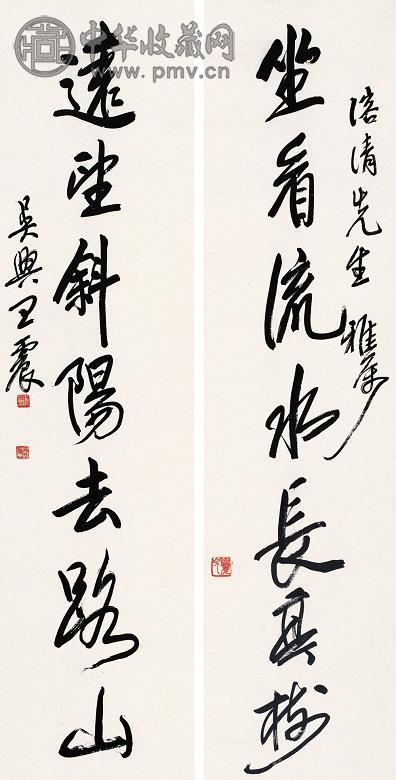 中华收藏网
www.pmv.cn
溶清先生雅属
坐看流水長其樹
遠望斜陽去路山
吳興王震